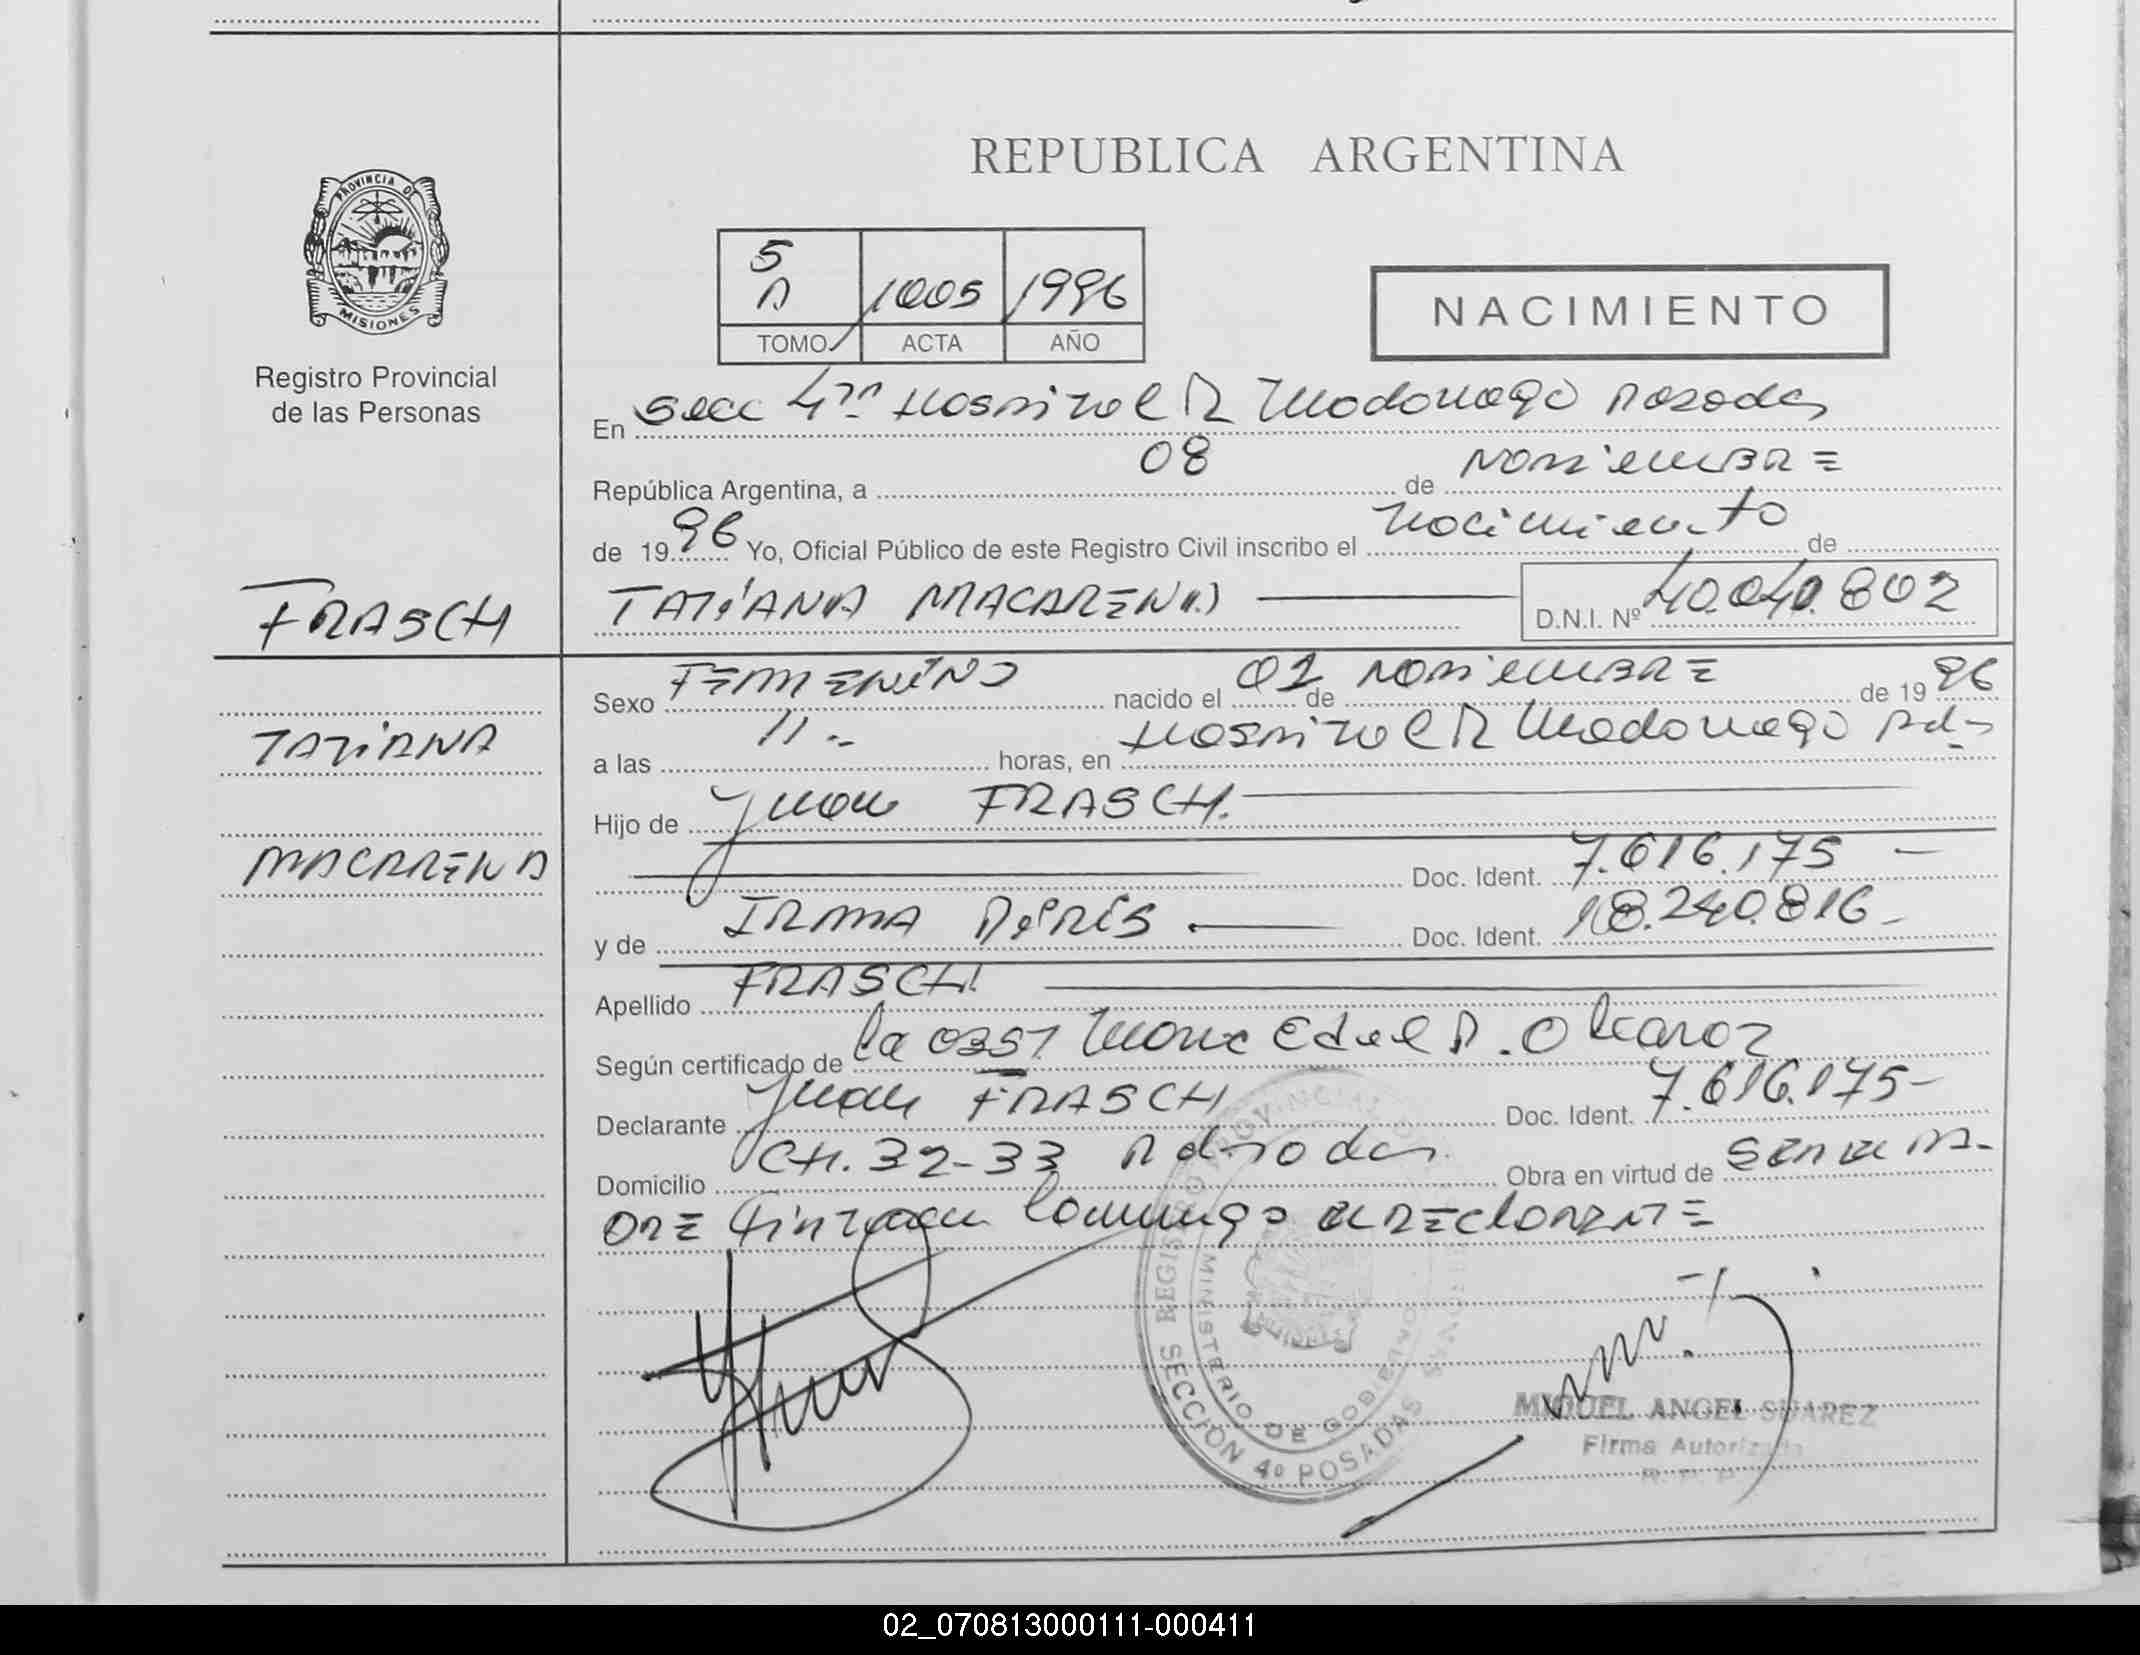 REPUBLICA ARGENTINA
PROVINCIA DE
MISIONES
Registro Provincial
de las Personas
5
A 1005 1996
TOMO ACTA AÑO
NACIMIENTO
En Secc 4ta Hospital R Madariaga Posadas
República Argentina, a 08 de Noviembre
de 1996 Yo, Oficial Público de este Registro Civil inscribo el Nacimiento de
FRASCH
TATIANA MACARENA D.N.I. Nº 40.040.802
Sexo FEMENINO nacido el 01 de Noviembre de 1996
TATIANA
a las 11.- horas, en Hospital R Madariaga Pdas
Hijo de Juan FRASCH.
MACARENA
Doc. Ident. 7.616.175
y de IRMA Doc. Ident. 18.240.816
Apellido FRASCH
Según certificado de la Obst
Declarante Juan FRASCH Doc. Ident. 7.616.175
Domicilio CH. 32-33 Obra en virtud de
conmigo el declarante
REGISTRO PROVINCIAL DE LAS PERSONAS
MINISTERIO DE GOBIERNO
SECCIÓN 4º POSADAS
MISIONES
MIGUEL ANGEL SUAREZ
Firma Autorizada
R. P. P.
02_070813000111-000411